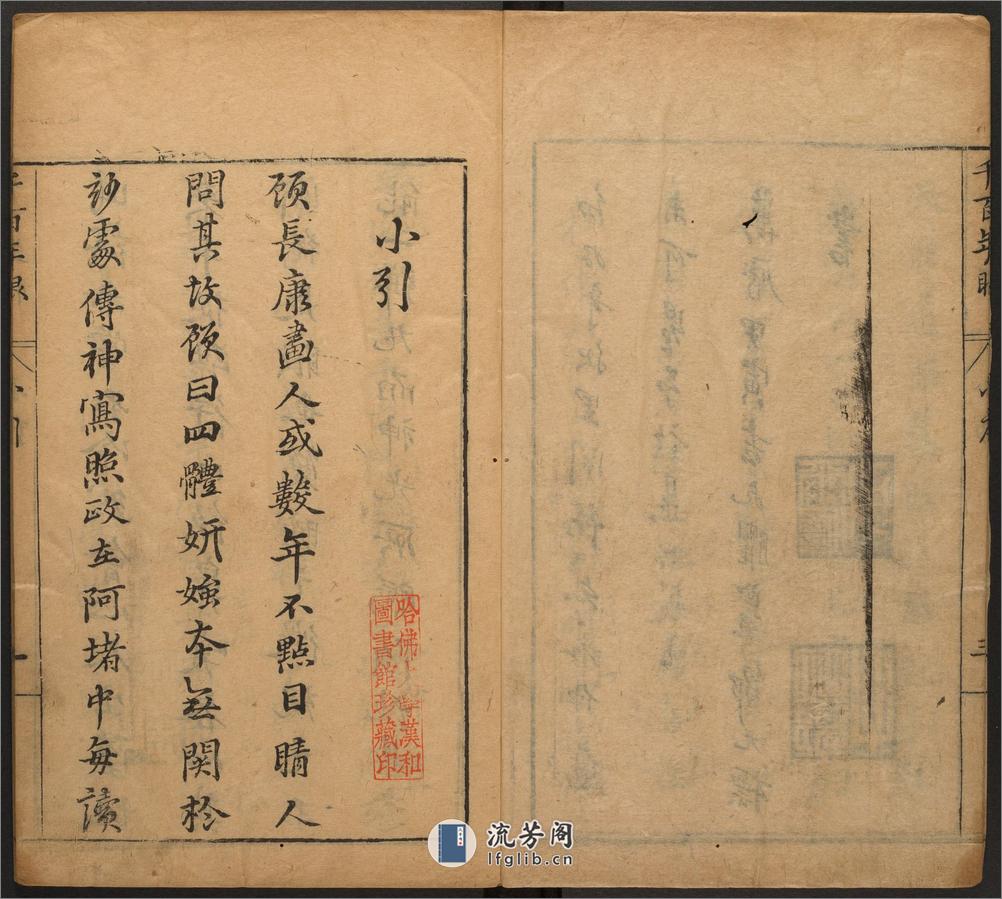 千百年眼
三
小引
顧長康畫人或數年不點目睛人
問其故顧曰四體妍媸本無関於
妙處傳神寫照政在阿堵中每讀
哈佛大學漢和
圖書館珍藏印
千百年眼
小引
一
流芳阁
lfglib.cn